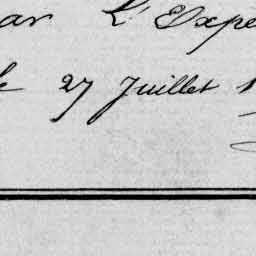 ar L'Expe
le 27 Juillet 1